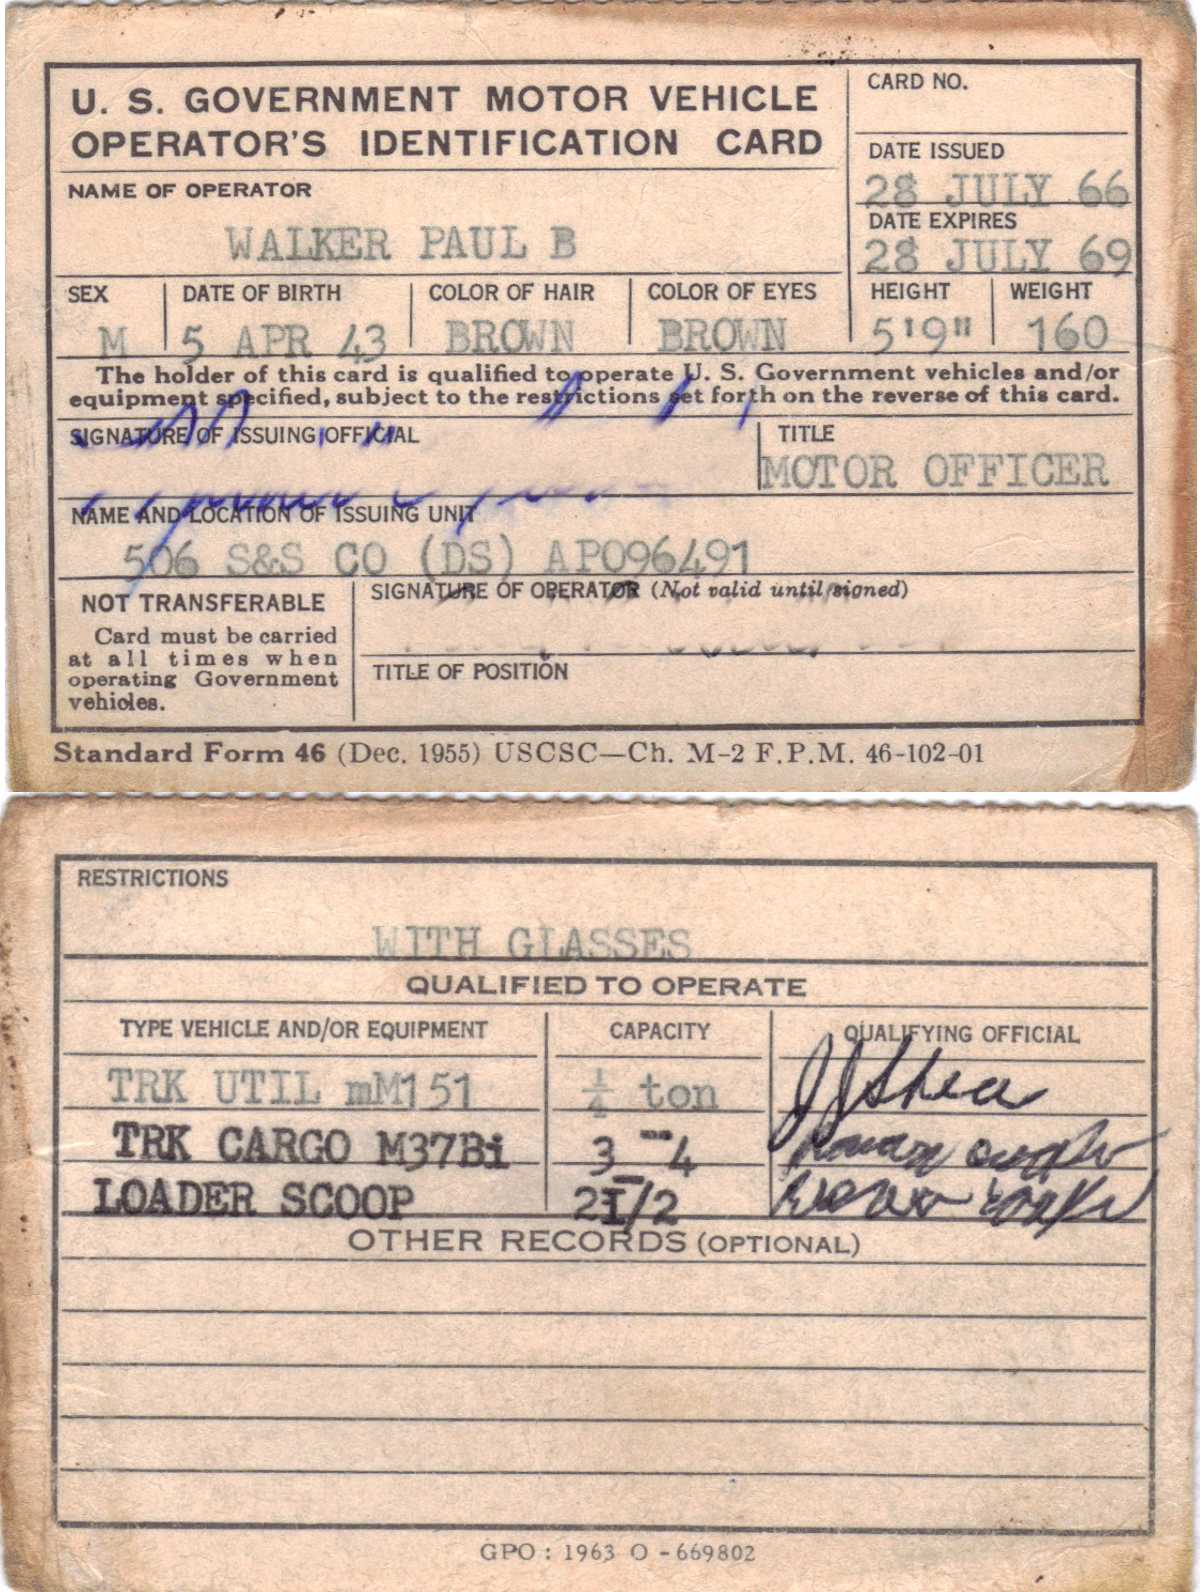 U. S. GOVERNMENT MOTOR VEHICLE
OPERATOR'S IDENTIFICATION CARD
CARD NO.
DATE ISSUED
28 JULY 66
NAME OF OPERATOR
WALKER PAUL B
DATE EXPIRES
28 JULY 69
SEX DATE OF BIRTH COLOR OF HAIR COLOR OF EYES HEIGHT WEIGHT
M 5 APR 43 BROWN BROWN 5'9" 160
The holder of this card is qualified to operate U. S. Government vehicles and/or
equipment specified, subject to the restrictions set forth on the reverse of this card.
SIGNATURE OF ISSUING OFFICIAL TITLE
MOTOR OFFICER
NAME AND LOCATION OF ISSUING UNIT
506 S&S CO (DS) APO96491
NOT TRANSFERABLE
Card must be carried
at all times when
operating Government
vehicles.
SIGNATURE OF OPERATOR (Not valid until signed)
TITLE OF POSITION
Standard Form 46 (Dec. 1955) USCSC—Ch. M-2 F.P.M. 46-102-01
RESTRICTIONS
WITH GLASSES
QUALIFIED TO OPERATE
TYPE VEHICLE AND/OR EQUIPMENT CAPACITY QUALIFYING OFFICIAL
TRK UTIL mM151 ¼ ton JJShea
TRK CARGO M37Bi 3 4
LOADER SCOOP 2I/2
OTHER RECORDS (OPTIONAL)
GPO : 1963 O - 669802